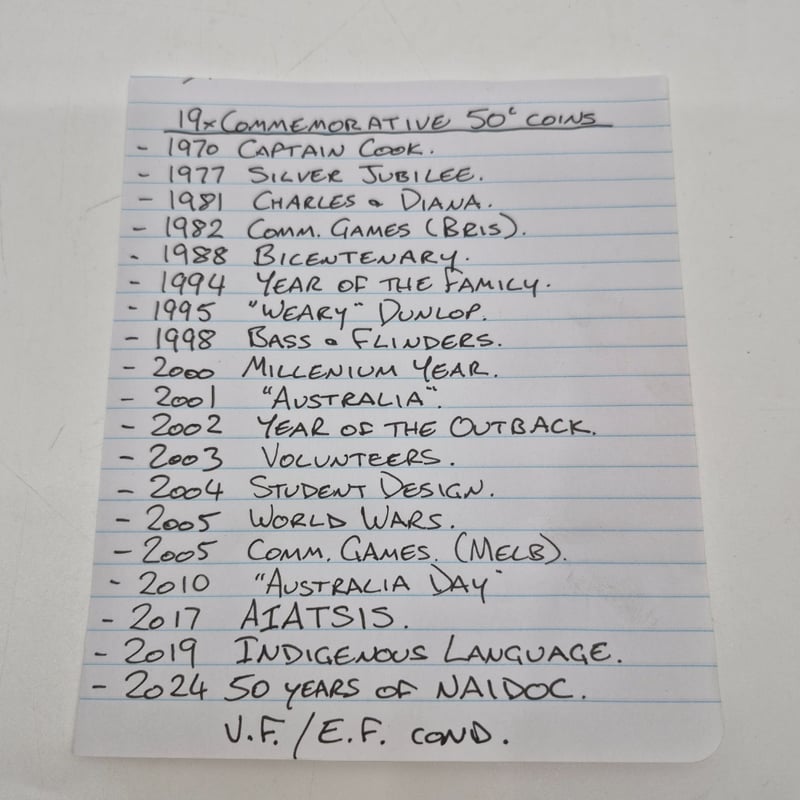 19x COMMEMORATIVE 50c COINS
- 1970 CAPTAIN COOK.
- 1977 SILVER JUBILEE.
- 1981 CHARLES & DIANA.
- 1982 COMM. GAMES (BRIS).
- 1988 BICENTENARY.
- 1994 YEAR OF THE FAMILY.
- 1995 "WEARY" DUNLOP.
- 1998 BASS & FLINDERS.
- 2000 MILLENIUM YEAR.
- 2001 "AUSTRALIA".
- 2002 YEAR OF THE OUTBACK.
- 2003 VOLUNTEERS.
- 2004 STUDENT DESIGN.
- 2005 WORLD WARS.
- 2005 COMM. GAMES. (MELB).
- 2010 "AUSTRALIA DAY"
- 2017 AIATSIS.
- 2019 INDIGENOUS LANGUAGE.
- 2024 50 YEARS OF NAIDOC.
V.F./E.F. COND.